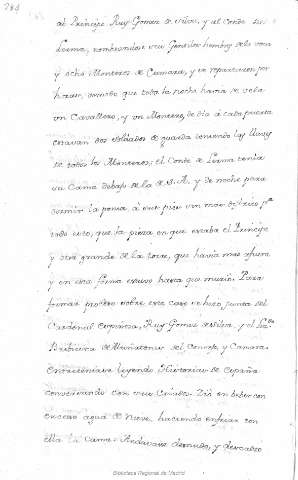 al Principe Ruy Gomez de Silva, y al Conde de
Lerma, nombrandose seis Gentiles hombres de la voca
y ocho Monteros de Camara, y se repartieron por
horas, siendo que toda la noche havia de vela
un Cavallero, y un Montero, de dia à cada puerta
estavan dos soldados de guarda teniendo las llaves
de todos los Monteros; el Conde de Lerma tenia
su Cama debajo de la de S. A. y de noche para
dormir la ponia à sus pies
todo esto, que la pieza en que estaba el Principe
y otra grande de la torre, que havia mas afuera
y en esta forma estuvo hasta que murió. Para
formar proceso sobre este caso se hizo junta del
Cardenal Espinosa, Ruy Gomez de Silva, y el Lizdo
Bribiesca de Muñatones del Consejo, y Camara.
Entreteniase leyendo Historias de España
conversando con sus Criados. Dió en beber con
exceso agua de nieve, haciendo enfriar con
ella la Cama. Andavase desnudo, y descalzo
Biblioteca Regional de Madrid